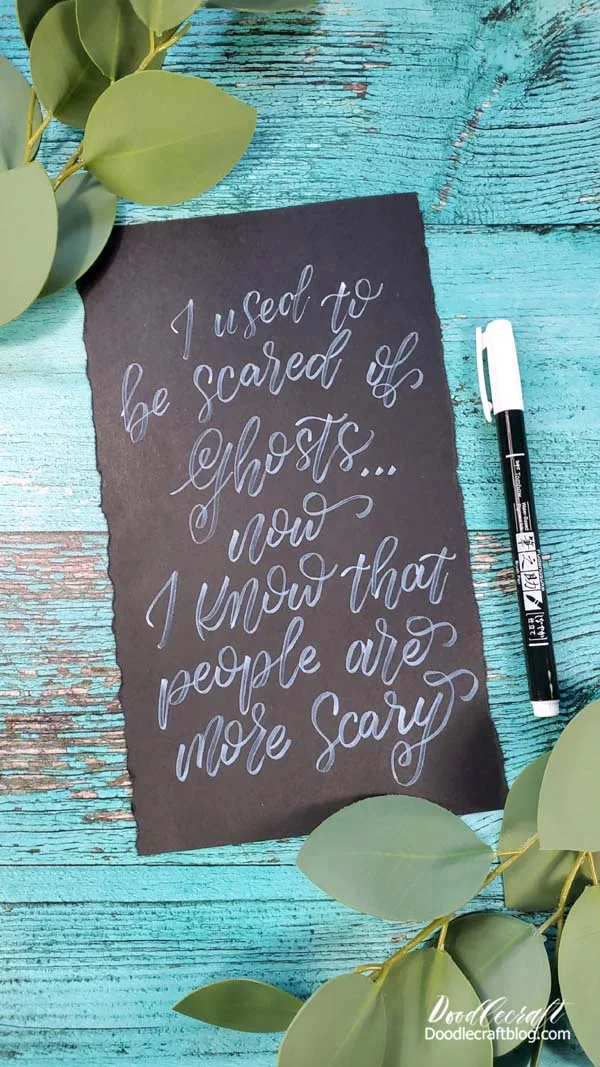 I used to
be scared of
Ghosts...
now
I know that
people are
more scary
Doodlecraft
Doodlecraftblog.com